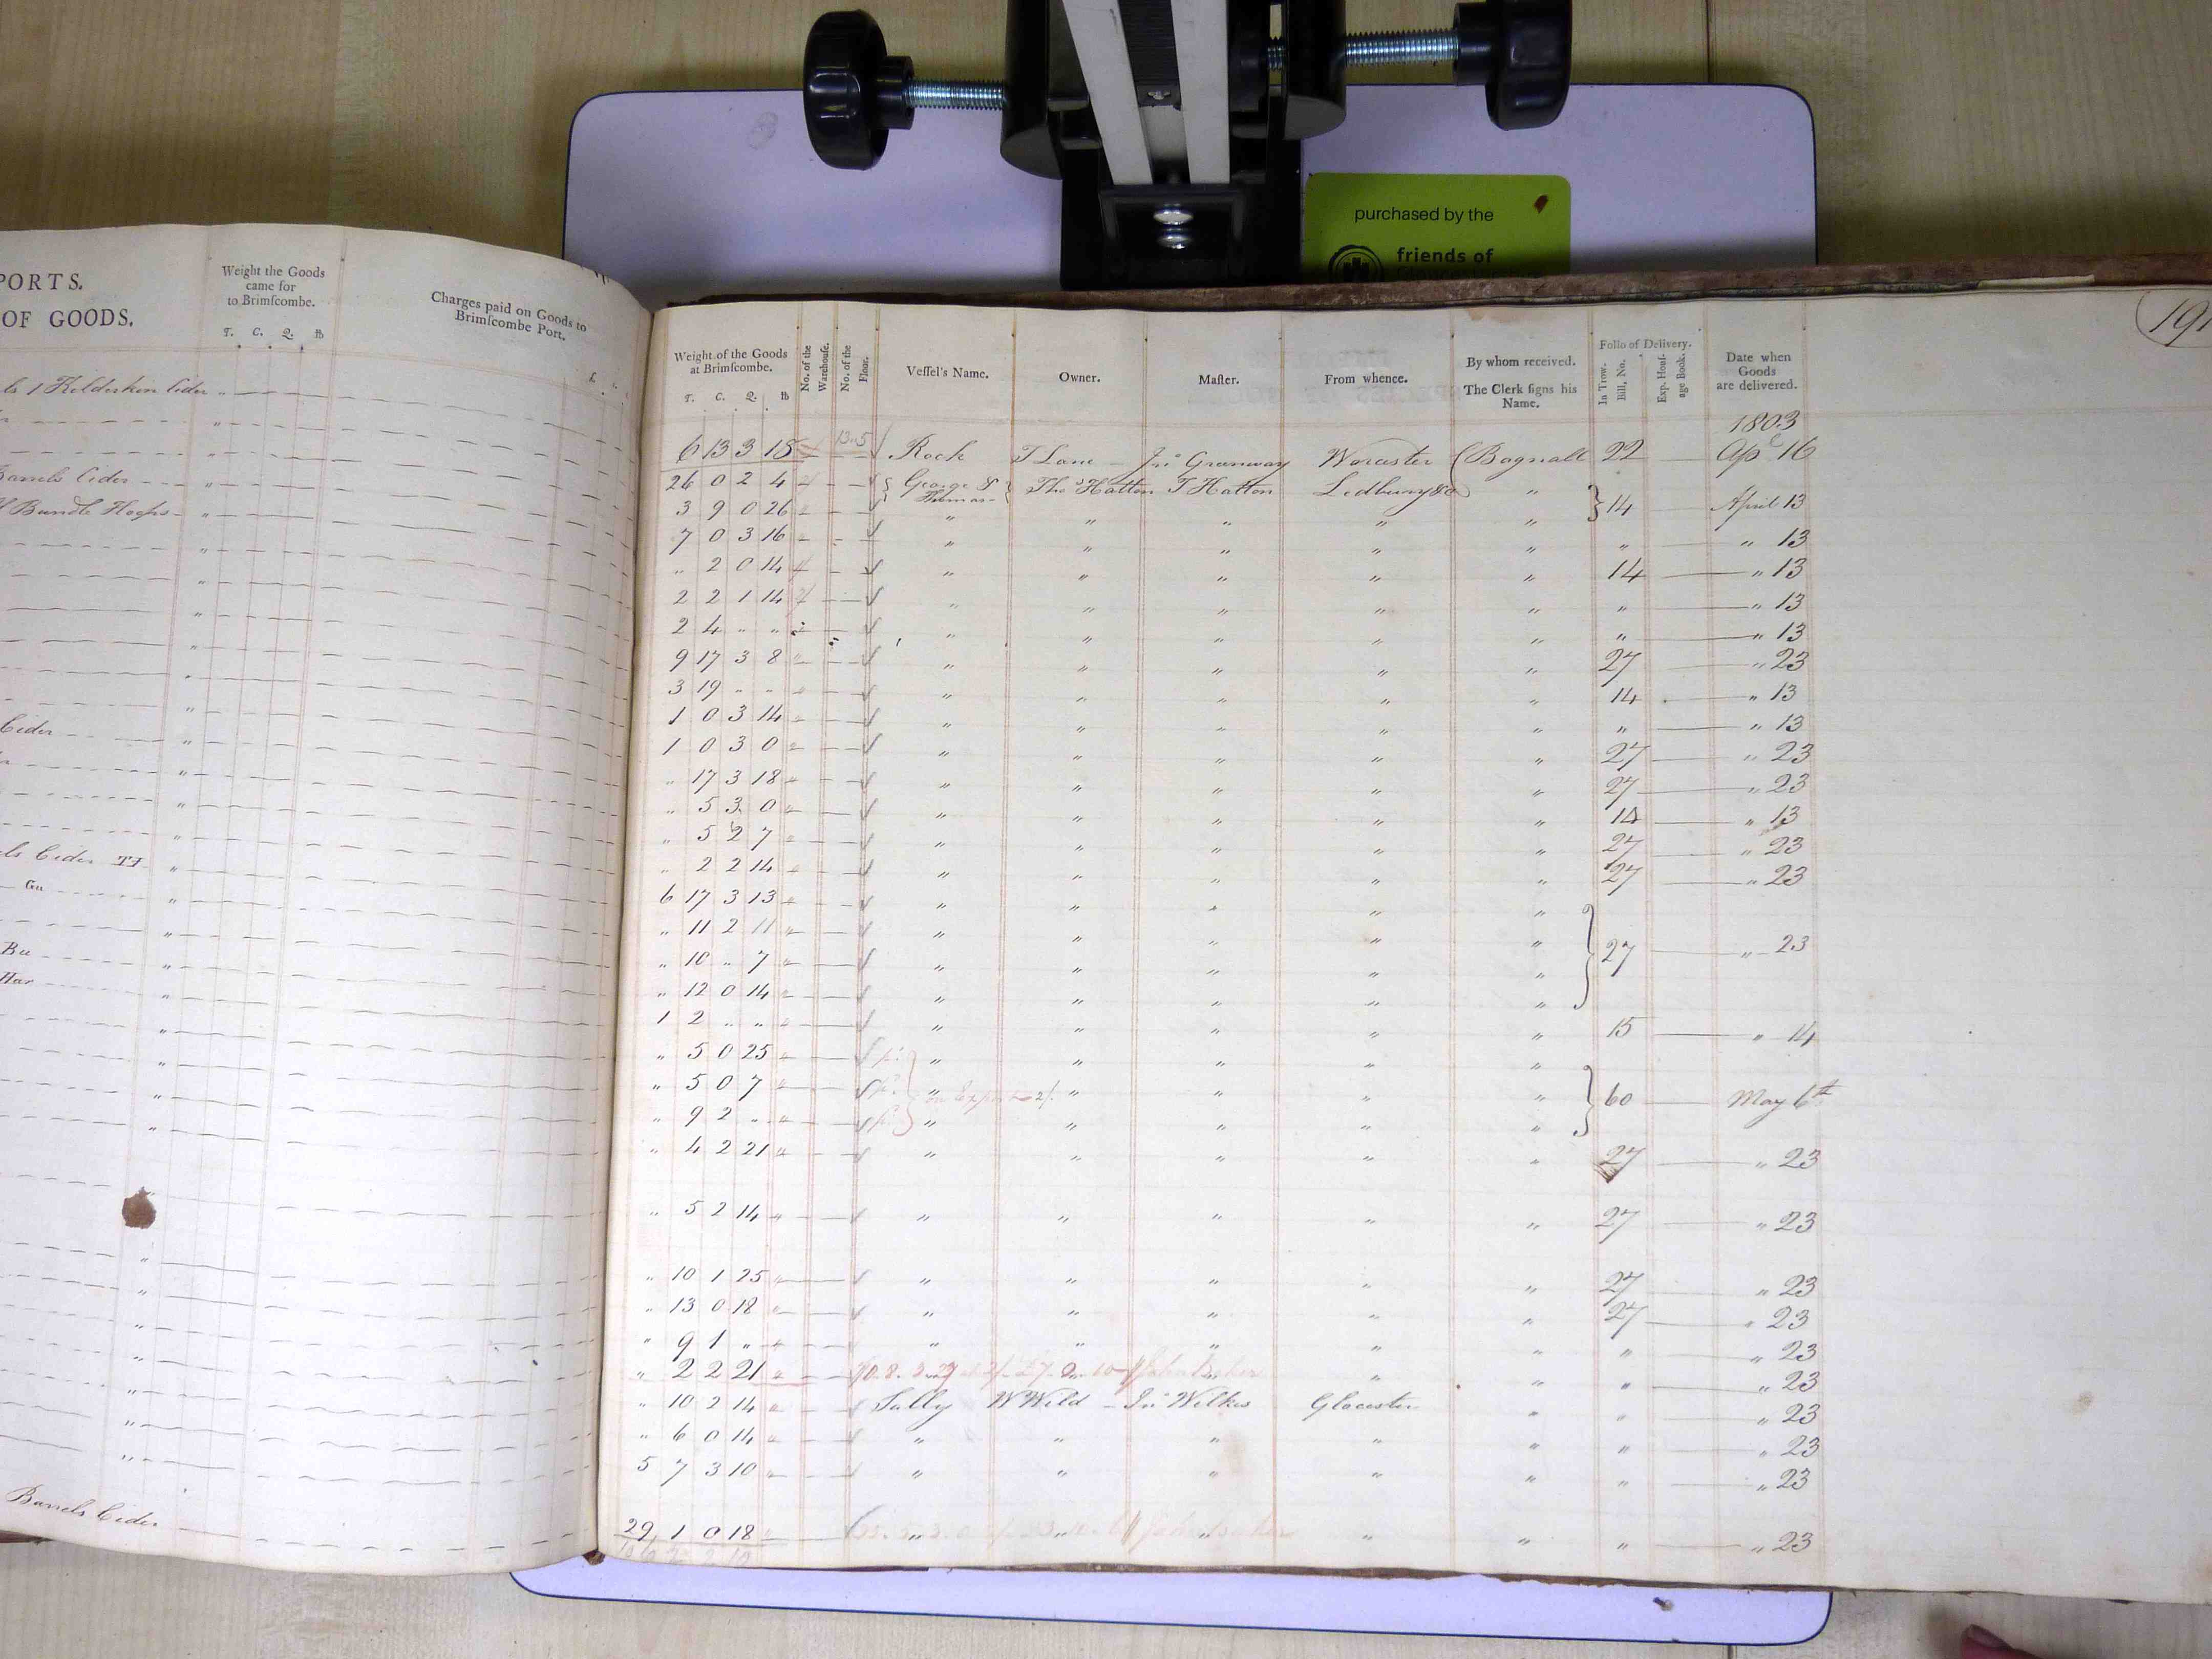 purchased by the
friends of
PORTS.
OF GOODS.
Weight the Goods
came for
to Brimſcombe.
T. C. Q. lb
Charges paid on Goods to
Brimſcombe Port.
1 Kilderkin Cider
Barrels Cider
Bundle Hoops
Cider
Cider TF
Gu
Bu
Har
Barrels Cider
191
Weight of the Goods
at Brimſcombe.
T. C. Q. lb
No. of the
Warehouſe.
No. of the
Floor.
Veſſel's Name.
Owner.
Maſter.
From whence.
By whom received.
The Clerk ſigns his
Name.
Folio of Delivery.
In Trow.
Bill, No.
Exp. Houſ-
age Book.
Date when
Goods
are delivered.
1803
6 13 3 18 Rock T Lane Jnº Greenway Worcester Bagnall 22 Apl 16
26 0 2 4 { George & Thomas } Thoˢ Hatton T Hatton Ledbury &c "
3 9 0 26 " " " " " } 14 April 13
7 0 3 16 " " " " " " " 13
" 2 0 14 " " " " " 14 " 13
2 2 1 14 " " " " " " " 13
2 4 " " " " " " " " " 13
9 17 3 8 " " " " " 27 " 23
3 19 " " " " " " " 14 " 13
1 0 3 14 " " " " " " " 13
1 0 3 0 " " " " " 27 " 23
" 17 3 18 " " " " " 27 " 23
" 5 3 0 " " " " " 14 " 13
" 5 2 7 " " " " " 27 " 23
" 2 2 14 " " " " " 27 " 23
6 17 3 13 " " " " "
" 11 2 11 " " " " "
" 10 " 7 " " " " " } 27 " 23
" 12 0 14 " " " " "
1 2 " " " " " " " 15 " 14
" 5 0 25 " " " " "
" 5 0 7 " " " " " } 60 May 6th
" 9 2 " " " " " "
" 4 2 21 " " " " " 27 " 23
" 5 2 14 " " " " " 27 " 23
" 10 1 25 " " " " " 27 " 23
" 13 0 18 " " " " " 27 " 23
" 9 1 " " " " " " " " 23
" 2 2 21 " " " " " 23
" 10 2 14 Sally W Wild Jnº Wilkes Glocester " " " 23
" 6 0 14 " " " " " " " 23
5 7 3 10 " " " " " " " 23
29 1 0 18 " " " " " " " 23